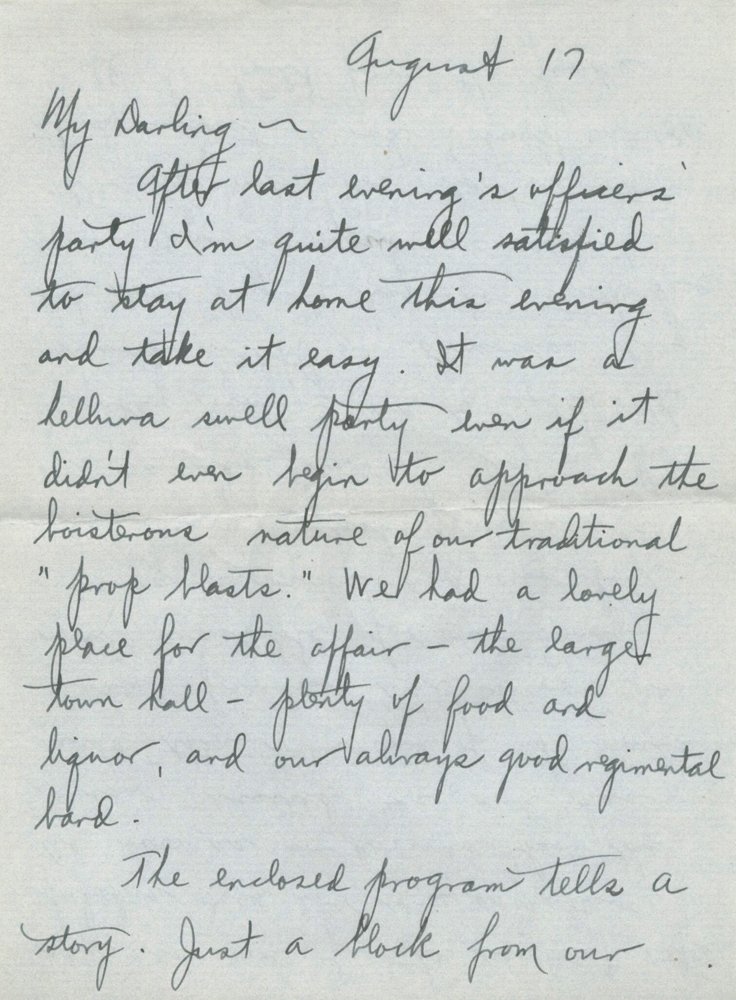 August 17
My Darling ~
After last evening's officers'
party I'm quite well satisfied
to stay at home this evening
and take it easy. It was a
helluva swell party even if it
didn't even begin to approach the
boisterous nature of our traditional
"prop blasts." We had a lovely
place for the affair - the large
town hall - plenty of food and
liquor, and our always good regimental
band.
The enclosed program tells a
story. Just a block from our